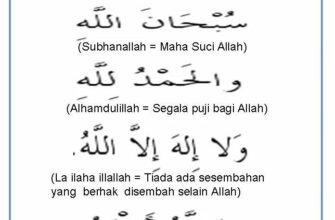 سُبْحَانَ اللَّهِ
(Subhanallah = Maha Suci Allah)
وَالْحَمْدُ لِلَّهِ
(Alhamdulillah = Segala puji bagi Allah)
وَلَا إِلَهَ إِلاَّ اللَّهُ.
(La ilaha illallah = Tiada ada sesembahan
yang berhak disembah selain Allah)